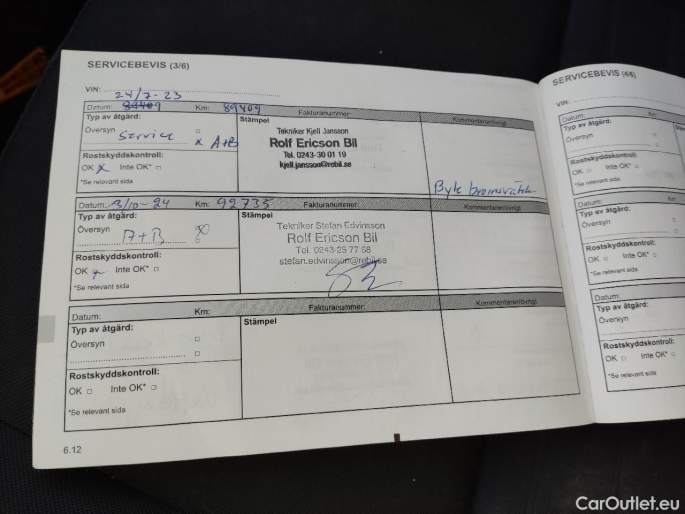 SERVICEBEVIS (3/6)
VIN:
24/7-23
Datum: 89409 Km: 89409 Fakturanummer: Kommentarer/övrigt
Typ av åtgärd:
Översyn Service x A+B
Rostskyddskontroll:
OK x Inte OK*
*Se relevant sida
Stämpel
Tekniker Kjell Jansson
Rolf Ericson Bil
Tel. 0243-30 01 19
kjell.jansson@rebil.se
Byte bromsvätska
Datum: 3/10-24 Km: 92735 Fakturanummer: Kommentarer/övrigt
Typ av åtgärd:
Översyn A+B x
Rostskyddskontroll:
OK x Inte OK*
*Se relevant sida
Stämpel
Tekniker Stefan Edvinsson
Rolf Ericson Bil
Tel. 0243-25 77 68
stefan.edvinsson@rebil.se
Datum: Km: Fakturanummer: Kommentarer/övrigt
Typ av åtgärd:
Översyn
Rostskyddskontroll:
OK Inte OK*
*Se relevant sida
Stämpel
6.12
SERVICEBEVIS (4/6)
VIN:
Datum: Km
Typ av åtgärd:
Översyn
Rostskyddskontroll:
OK Inte OK*
*Se relevant sida
Datum: Km
Typ av åtgärd:
Översyn
Rostskyddskontroll:
OK Inte OK*
*Se relevant sida
Datum:
Typ av åtgärd:
Översyn
Rostskyddskontroll:
OK Inte OK*
*Se relevant sida
CarOutlet.eu